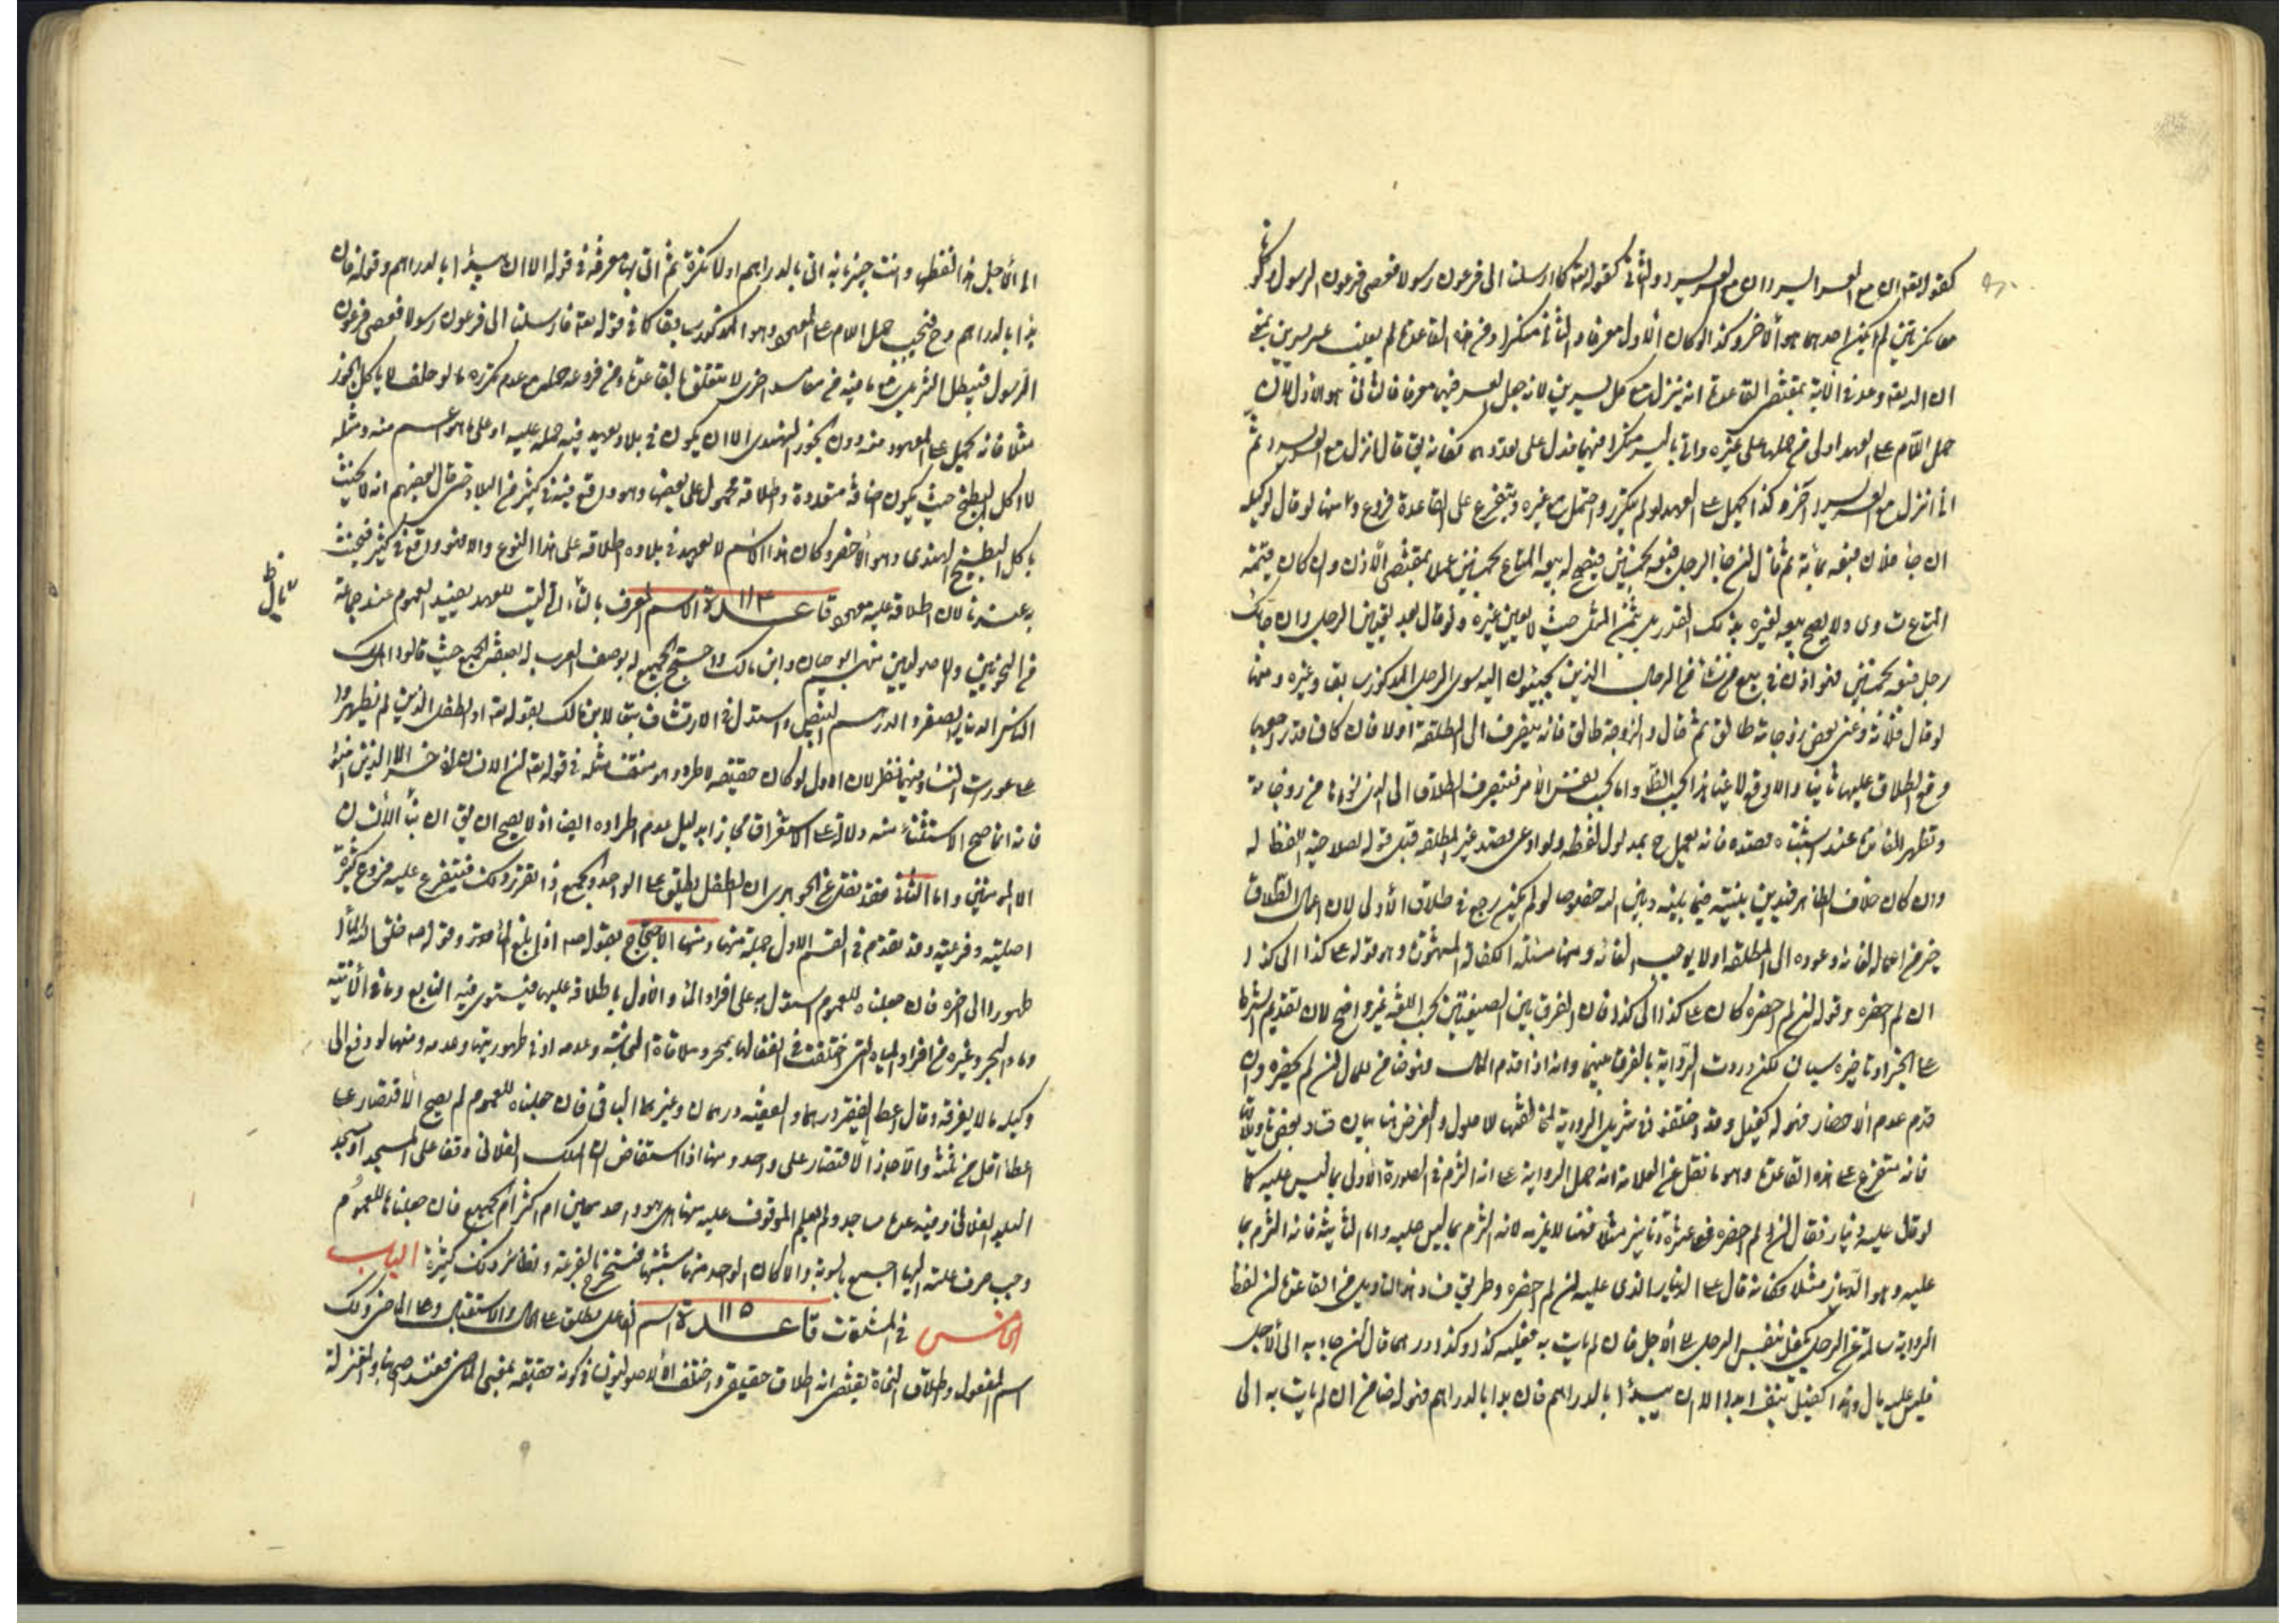 كقوله تعه ان مع العسر اليسر وان مع العسر اليسر والثاني كقوله تعه كما ارسلنا الى فرعون رسولا فعصى فرعون الرسول ولو كانا
معا نكرتين لم يكن احدهما هو الاخر وكذا لو كان الاول معرفا والثاني منكرا ومن هذه القاعدة لم يغلب عسر يسرين
ان الله تعه وعد في الآية بمقتضى القاعدة انه ينزل مع كل عسر يسرين لانه جعل العسر فيهما معرفا فالثاني هو الاول لان
حمل اللام على العهد اولى من حملها على غيره واتى باليسر منكرا فيهما فدل على تعددهما فكانه تعه قال انزل مع العسر يسرا ثم
اني انزل مع العسر يسرا آخر وكذا يحمل على العهد لو لم يتكرر واحتمل مع غيره ويتفرع على القاعدة فروع منها لو قال لوكيله
ان جاء فلان فبعه بمائة ثم قال ان جاء الرجل فبعه بخمسين فيصح له بيعه المتاع بخمسين عملا بمقتضى الاذن وان كان قيمته
المتاع تساوي ولا يصح بيعه لغيره بذلك القدر بل بثمن المثل حيث لا يعين غيره ولو قال بعد تعيين الرجل وان جاءك
رجل فبعه بخمسين فهو اذن في بيع من شاء من الرجال الذين يجيئون اليه سوى الرجل المذكور سابقا وغيره ومنها
لو قال فلانة وعنى بعض زوجاته طالق ثم قال والزوجة طالق فانه ينصرف الى المطلقة اولا فان كان قد راجعها
وقع الطلاق عليها ثانيا والا وقع لاغيا هذا بحسب الظاهر واما بحسب نفس الامر فينصرف الطلاق الى الذي نواها من زوجاته
وتظهر الفائدة عند اشتباه قصده فانه يعمل ح بمدلول لفظه ولو ادعى قصد غير المطلقة قبل قوله لصلاحية اللفظ له
وان كان خلاف الظاهر فيدين بنيته فيما بينه وبين الله خصوصا لو لم يكن رجع في طلاق الاولى لان اعمال الطلاق
خير من اهماله الغائه وعوده الى المطلقة اولا يوجب الغائه ومنها مسئلة الكفالة المشهورة وهو قوله على كذا الى كذا
ان لم احضره وقوله ان لم احضره كان على كذا الى كذا فان الفرق بين الصيغتين بحسب اللغة غير واضح لان تقديم الشرط
على الجزاء وتاخيره سيان لكن وردت الرواية بالفرق بينهما وانه اذا قدم المال فهو ضامن للمال ان لم يحضره وان
قدم عدم الاحضار فهو له كفيل وقد اختلف في تنزيل الرواية لمخالفتها للاصول والغرض هنا بيان فساد بعض تاويلاتها
فانه متفرع على هذه القاعدة وهو ما نقل عن العلامة انه حمل الرواية على انه التزم في الصورة الاولى بما ليس عليه كما
لو قال عليه دينار فقال ان لم احضره فعلى عشرة دنانير مثلا فهنا لا يلزمه لانه التزم بما ليس عليه واما الثانية فانه التزم بما
عليه وهو الدينار مثلا وكانه قال على الدينار الذي عليه ان لم احضره وطريق فساد هذا التاويل من القاعدة ان لفظ
الرواية سالته عن الرجل يكفل بنفس الرجل الى اجل فان لم يات به فعليه كذا وكذا درهما قال ان جاء به الى الاجل
فليس عليه مال وهو كفيل بنفسه ابدا الا ان يبدأ بالدراهم فان بدا بالدراهم فهو له ضامن ان لم يات به الى
الى الاجل هذا لفظه وانت خبير بانه اتى بالدراهم اولا نكرة ثم اتى بها معرفة في قوله الا ان يبدأ بالدراهم وقوله فان
بدا بالدراهم وح فيجب حمل اللام على المعهود وهو المذكور سابقا كما في قوله تعه فارسلنا الى فرعون رسولا فعصى فرعون
الرسول فيبطل التنزيل مع ما فيه من مفاسد اخرى لا يتعلق بالقاعدة ومن فروعه حمله مع عدم تكرره ما لو حلف لا ياكل الجوز
مثلا فانه يحمل على المعهود منه دون الجوز الهندي الا ان يكون في بلاد يعهد فيه حمله عليه او على ما هو اعم منه ومثله
لا اكل البطيخ حيث يكون اضافه متعددة واطلاقه محمول على بعضها وهو واقع فيه في كثير من البلاد حتى قال بعضهم انه لا يحنث
باكل البطيخ الهندي وهو الاخضر وكان هذا الاسم لا يعهد في بلاده اطلاقه على هذا النوع والا فهو واقع في كثير فيحنث
به عندنا لان اطلاقه عليه معهود قاعدة ١١٤ الاسم المعرف بال التي ليست للعهد يفيد العموم عند جماعة
من النحويين والاصوليين منهم ابو حيان وابن مالك واحتج الجميع له بوصف العرب له بصفة الجمع حيث قالوا اهلك
الناس الدينار الصفر والدرهم البيض واستدل في الارتشاف تبعا لابن مالك بقوله تعه او الطفل الذين لم يظهروا
على عورات النساء وفيهما نظر لان الاول لو كان حقيقة لاطرد وهو منتقض بمثله في قوله تعه ان الانسان لفي خسر الا الذين امنوا
فانه انما صح الاستثناء منه ودلالته على الاستغراق مجازا بدليل عدم اطراده ايضا اذ لا يصح ان يق ان الانسان
الا المؤمنين واما الثاني فقد نقل عن الجوهري ان الطفل يطلق على الواحد والجمع اذا تقرر ذلك فيتفرع عليه فروع كثيرة
اصلية وفرعية وقد تقدم في القسم الاول جملة منها ومنها الاحتجاج بقوله صه اذا بلغ الماء وقوله صه خلق الله الماء
طهورا الى اخره فان جعلناه للعموم استدل به على افراد الماء والاول باطلاقه عليها فيستوي فيه النابع وماء الآنية
وماء البحر وغيره من افراد المياه التي اختلفت في انفعالها بمجرد ملاقاة النجاسة وعدمه او في طهوريتها وعدمه ومنها لو دفع الى
وكيله ما لا يفرقه وقال اعط الفقير درهما والفقيه درهمان وغيرهما الباقي فان حملناه للعموم لم يصح الاقتصار على
اعطاء اقل من ثلثة والا جاز الاقتصار على واحد ومنها اذا استفاض ان الملك الفلاني وقف على المسجد او مسجد
البلد الفلاني وفيه عدة مساجد ولم يعلم الموقوف عليه منها هل هو واحد معين ام اكثر ام الجميع فان جعلناه للعموم
وجب صرف غلته اليها اجمع بالسوية والا كان الواحد منها مشتبها فيستخرج بالقرعة ونظائر ذلك كثيرة الباب
الخامس في المشتقات قاعدة ١١٥ اسم الفاعل يطلق على الحال والاستقبال وعلى الماضي وكذلك
اسم المفعول واطلاق النحاة يقتضي انه اطلاق حقيقي واختلف الاصوليون في كونه حقيقة بمعنى الماضي فعند اصحابنا والمعتزلة